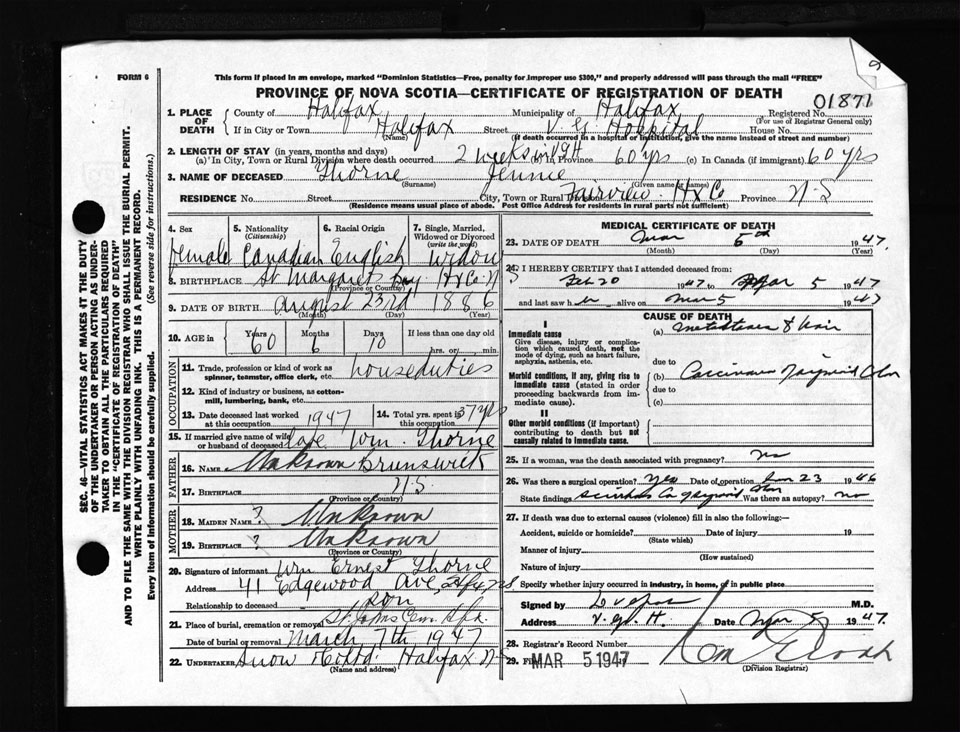 FORM 6
This form if placed in an envelope, marked "Dominion Statistics—Free, penalty for improper use $300," and properly addressed will pass through the mail "FREE"
PROVINCE OF NOVA SCOTIA—CERTIFICATE OF REGISTRATION OF DEATH
01871
1. PLACE OF DEATH { County of Halifax Municipality of Halifax Registered No.
(For use of Registrar General only)
If in City or Town Halifax Street V. G. Hospital House No.
(If death occurred in a hospital or institution, give the name instead of street and number)
2. LENGTH OF STAY (in years, months and days)
(a) In City, Town or Rural Division where death occurred 2 weeks in VGH in Province 60 yrs (c) In Canada (if immigrant) 60 yrs
3. NAME OF DECEASED Thorne Jennie
(Surname) (Given name or names)
RESIDENCE No. Street City, Town or Rural Division Fairview Hx Co Province N-S
(Residence means usual place of abode. Post Office Address for residents in rural parts not sufficient)
4. Sex 5. Nationality (Citizenship) 6. Racial Origin 7. Single, Married, Widowed or Divorced (write the word)
Female Canadian English Widow
8. BIRTHPLACE St Margarets Bay Hx Co. N S
(Province or Country)
9. DATE OF BIRTH August 23rd 1886
(Month) (Day) (Year)
10. AGE in { Years Months Days If less than one day old
60 6 10 hrs. or min.
OCCUPATION
11. Trade, profession or kind of work as spinner, teamster, office clerk, etc. houseduties
12. Kind of industry or business, as cotton-mill, lumbering, bank, etc.
13. Date deceased last worked at this occupation 1947 14. Total yrs. spent in 37 yrs
15. If married give name of wife or husband of deceased late Wm. Thorne
FATHER
16. NAME Unknown Brunswick
17. BIRTHPLACE N.S.
(Province or Country)
MOTHER
18. MAIDEN NAME ? Unknown
19. BIRTHPLACE ? Unknown
(Province or Country)
20. Signature of informant Wm Ernest Thorne
Address 41 Edgewood Ave, Hfx, NS
Relationship to deceased son
21. Place of burial, cremation or removal St. Johns Cem. Hfx.
Date of burial or removal March 7th 1947
22. UNDERTAKER Snow & Co Ltd. Halifax N-S
(Name and address)
MEDICAL CERTIFICATE OF DEATH
23. DATE OF DEATH Mar 5th 1947.
(Month) (Day) (Year)
24. I HEREBY CERTIFY that I attended deceased from:
Feb 20 1947 to Mar 5 1947
and last saw her alive on Mar 5 1947
CAUSE OF DEATH
I
Immediate cause
Give disease, injury or complication which caused death, not the mode of dying, such as heart failure, asphyxia, asthenia, etc.
(a) Metastases
due to
Morbid conditions, if any, giving rise to immediate cause (stated in order proceeding backwards from immediate cause).
(b) Carcinoma Sigmoid Colon
due to
(c)
II
Other morbid conditions (if important) contributing to death but not causally related to immediate cause.
25. If a woman, was the death associated with pregnancy? no
26. Was there a surgical operation? Yes Date of operation 23 1946
State findings Ca sigmoid Was there an autopsy? no
27. If death was due to external causes (violence) fill in also the following:—
Accident, suicide or homicide? Date of injury 19
(State which)
Manner of injury
(How sustained)
Nature of injury
Specify whether injury occurred in industry, in home, or in public place
Signed by M.D.
Address V. G. H. Date Mar 5 1947.
28. Registrar's Record Number
29. Filed MAR 5 1947
(Division Registrar)
SEC. 46—VITAL STATISTICS ACT MAKES IT THE DUTY OF THE UNDERTAKER OR PERSON ACTING AS UNDERTAKER TO OBTAIN ALL THE PARTICULARS REQUIRED IN THE "CERTIFICATE OF REGISTRATION OF DEATH"
AND TO FILE THE SAME WITH THE DIVISION REGISTRAR WHO SHALL ISSUE THE BURIAL PERMIT.
WRITE PLAINLY WITH UNFADING INK. THIS IS A PERMANENT RECORD.
Every item of information should be carefully supplied. (See reverse side for instructions.)